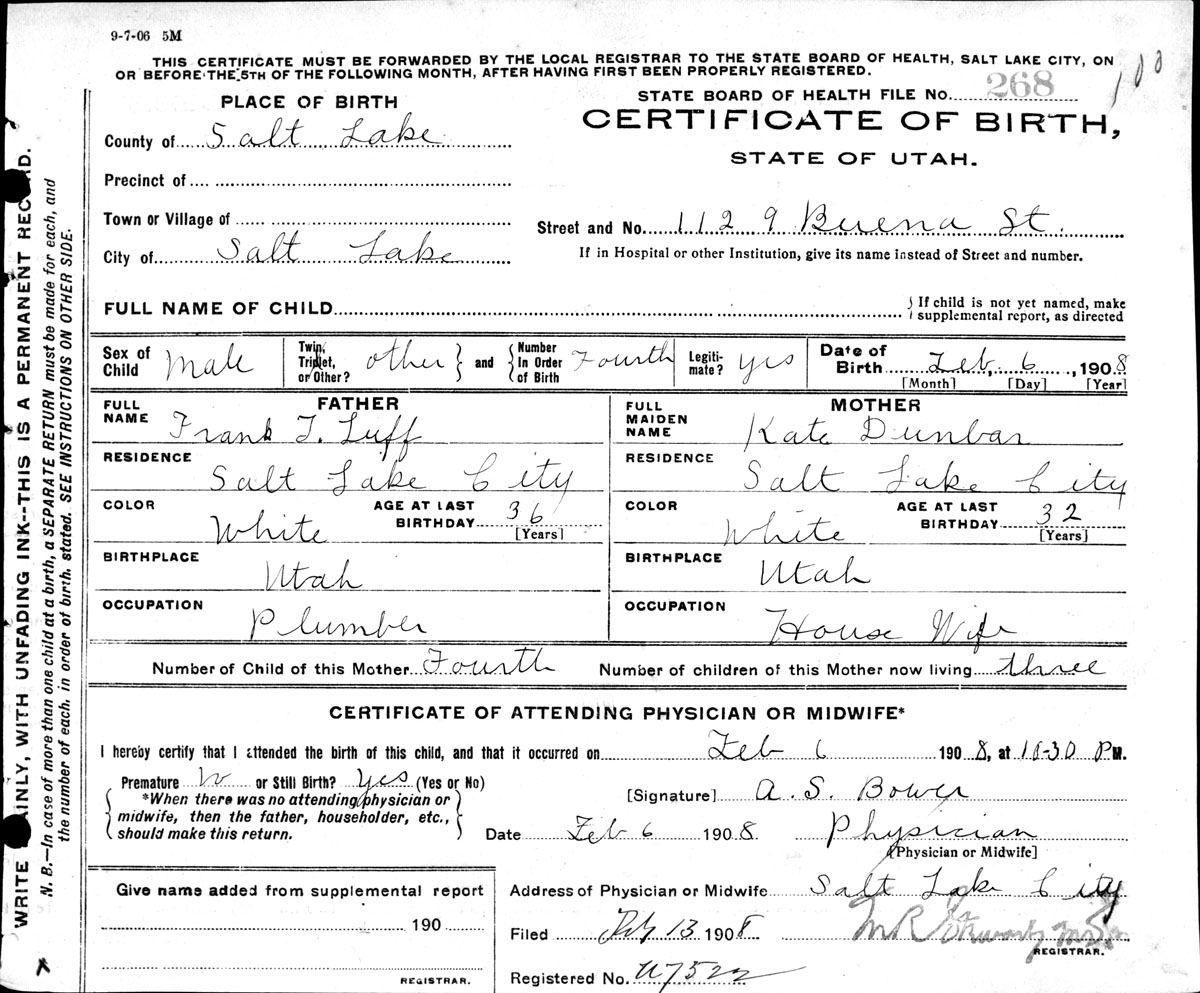 9-7-06 5M
THIS CERTIFICATE MUST BE FORWARDED BY THE LOCAL REGISTRAR TO THE STATE BOARD OF HEALTH, SALT LAKE CITY, ON
OR BEFORE THE 5TH OF THE FOLLOWING MONTH, AFTER HAVING FIRST BEEN PROPERLY REGISTERED.
STATE BOARD OF HEALTH FILE NO. 268
CERTIFICATE OF BIRTH,
STATE OF UTAH.
PLACE OF BIRTH
County of Salt Lake
Precinct of
Town or Village of
City of Salt Lake
Street and No. 1129 Buena St.
If in Hospital or other Institution, give its name instead of Street and number.
FULL NAME OF CHILD
{If child is not yet named, make
supplemental report, as directed
Sex of Child Male
Twin, Triplet, or Other? other } and { Number In Order of Birth Fourth
Legiti-mate? yes
Date of Birth Feb, 6, 1908
[Month] [Day] [Year]
FATHER
FULL NAME Frank J. Luff
RESIDENCE Salt Lake City
COLOR White AGE AT LAST BIRTHDAY 36
[Years]
BIRTHPLACE Utah
OCCUPATION Plumber
MOTHER
FULL MAIDEN NAME Kate Dunbar
RESIDENCE Salt Lake City
COLOR White AGE AT LAST BIRTHDAY 32
[Years]
BIRTHPLACE Utah
OCCUPATION House Wife
Number of Child of this Mother Fourth Number of children of this Mother now living three
CERTIFICATE OF ATTENDING PHYSICIAN OR MIDWIFE*
I hereby certify that I attended the birth of this child, and that it occurred on Feb 6 1908, at 10-30 PM.
Premature No or Still Birth? Yes (Yes or No)
{*When there was no attending physician or
midwife, then the father, householder, etc.,
should make this return.}
[Signature] A. S. Bower
Date Feb 6 1908 Physician
(Physician or Midwife]
Address of Physician or Midwife Salt Lake City
Filed Feby 13 1908
REGISTRAR.
Registered No.
Give name added from supplemental report
190
REGISTRAR.
WRITE PLAINLY, WITH UNFADING INK--THIS IS A PERMANENT RECORD.
N. B.—In case of more than one child at a birth, a SEPARATE RETURN must be made for each, and
the number of each, in order of birth, stated. SEE INSTRUCTIONS ON OTHER SIDE.